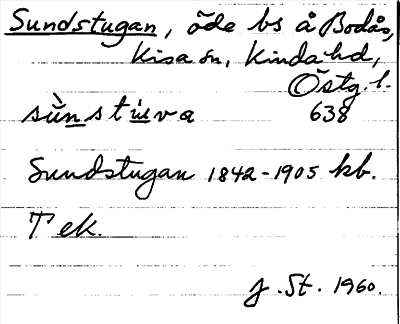 Sundstugan, öde bs å Bodås,
Kisa sn, Kinda hd,
Östg. l.
sùnstúva 638
Sundstugan 1842-1905 kb.
Tek.
J. St. 1960.